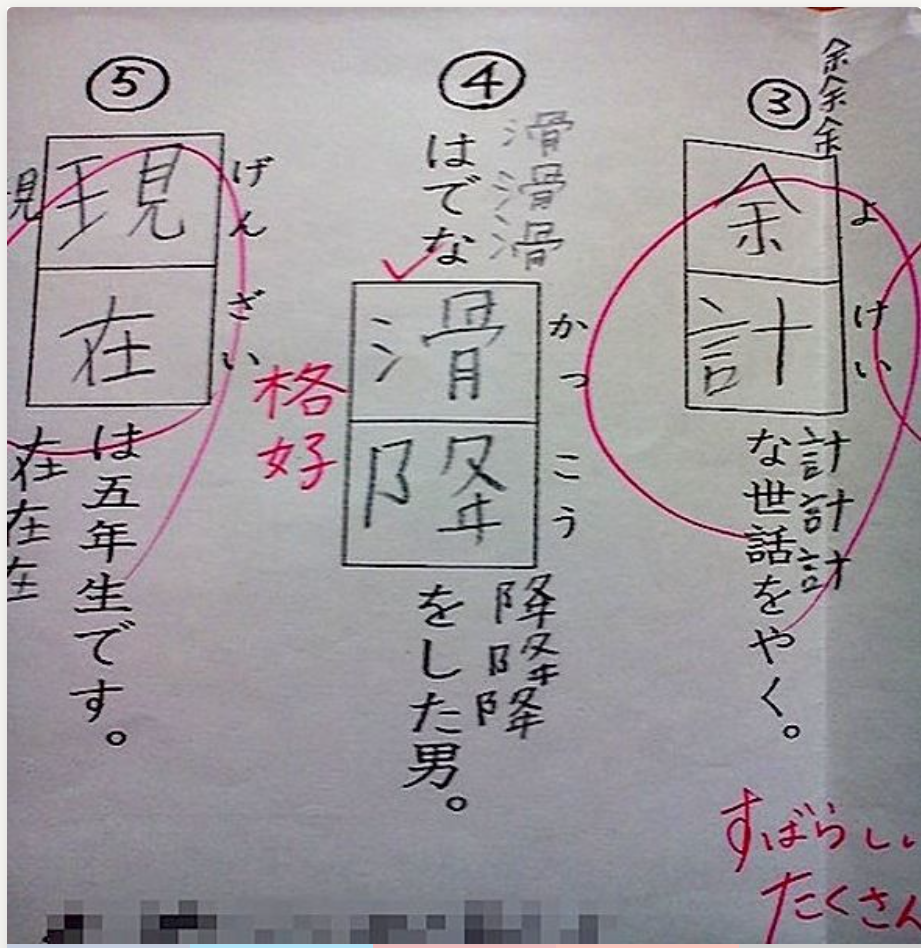 余余余
③
余計
よけい
な世話をやく。
計計計
④
滑滑滑
はでな
滑降
かっこう
格好
をした男。
降降降
⑤
現在
げんざい
は五年生です。
現
在在在
すばらしい
たくさん